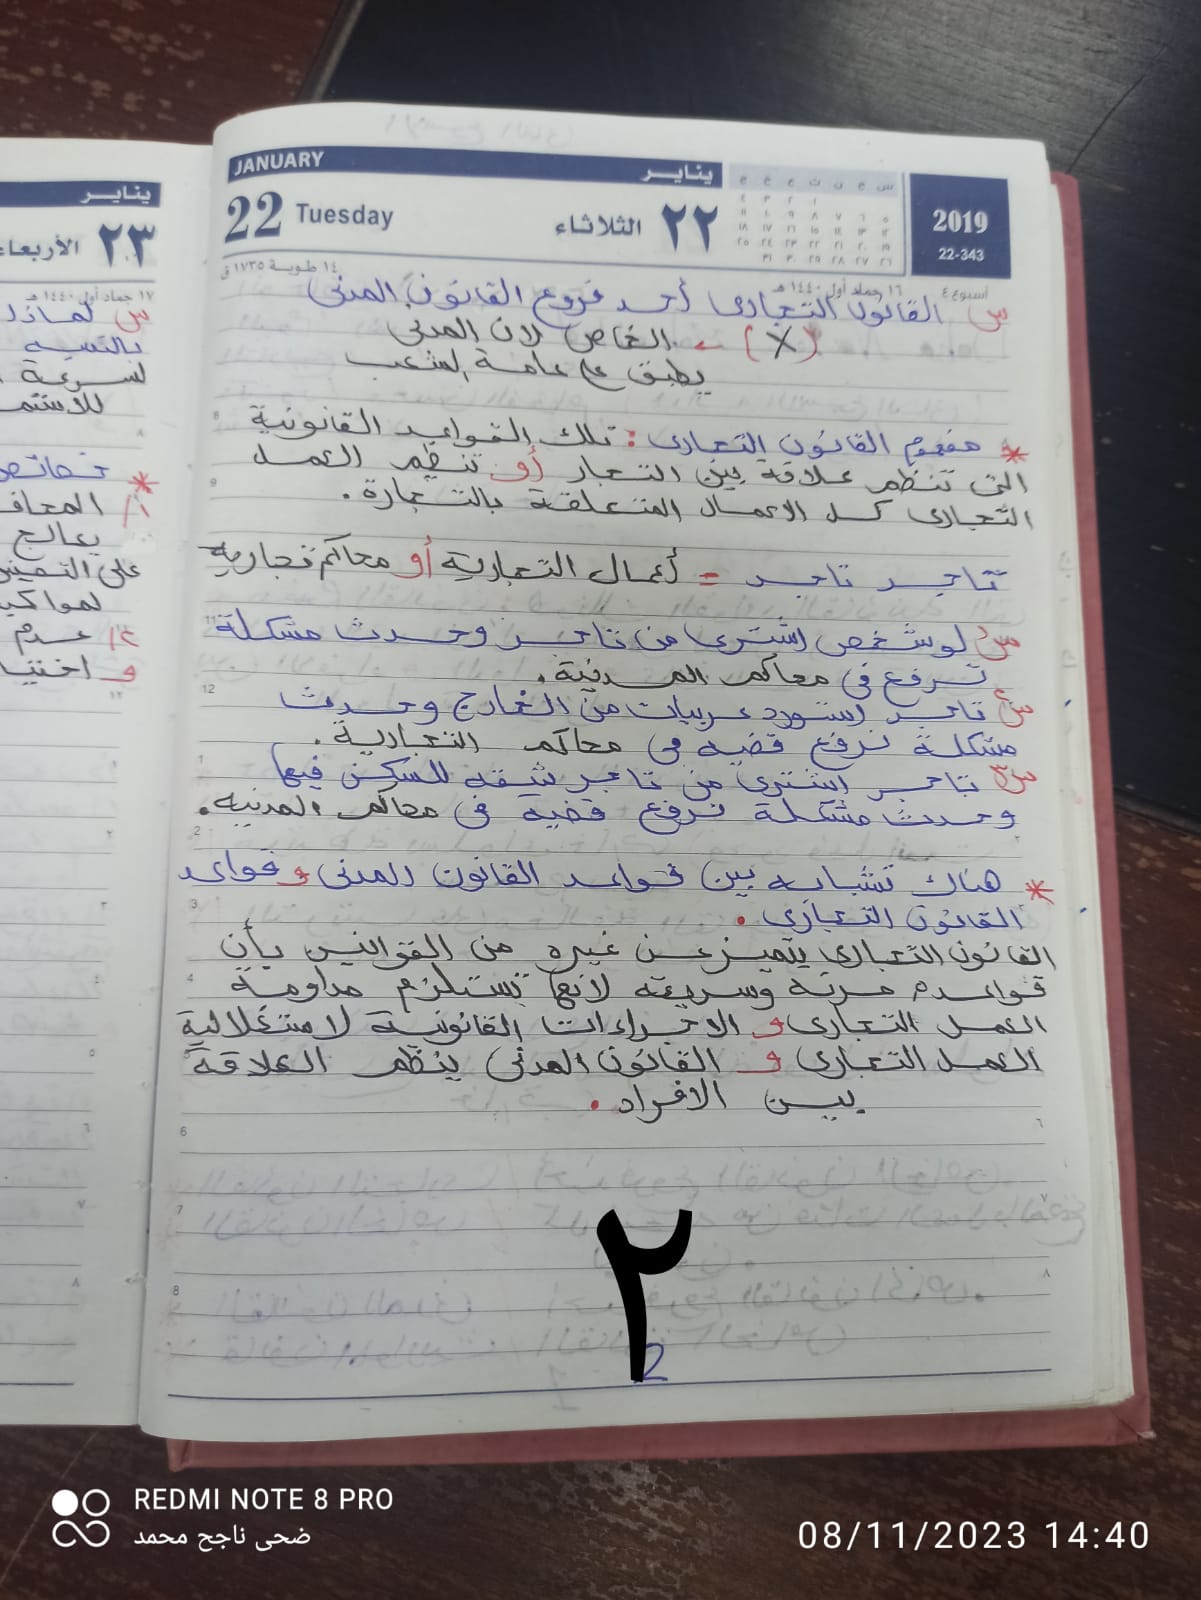 JANUARY
يناير
22 Tuesday
الثلاثاء ٢٢
2019
22-343
١٤ طوبة ١٧٣٥ ق
١٦ جماد أول ١٤٤٠ هـ
أسبوع ٤
س القانون التجارى أحد فروع القانون المدنى
(X) ← الخاص لان المدنى
يطبق على عامة الشعب
* مفهوم القانون التجارى : تلك القواعد القانونية
التى تنظم علاقة بين التجار أو تنظم العمل
التجارى كل الاعمال المتعلقة بالتجارة .
تاجر تاجر = أعمال التجارية أو محاكم تجارية
س١ لو شخص اشترى من تاجر وحدث مشكلة
ترفع فى محاكم المدنية .
س٢ تاجر استورد عربيات من الخارج وحدث
مشكلة نرفع قضيه فى محاكم التجارية .
س٣ تاجر اشترى من تاجر شقه للسكن فيها
وحدث مشكلة نرفع قضية فى محاكم المدنيه .
* هناك تشبابه بين قواعد القانون المدنى و قواعد
القانون التجارى .
القانون التجارى يتميز عن غيره من القوانين بأن
قواعده مرنه وسريعه لانها تستلزم مداومة
العمل التجارى و الاجراءات القانونية لاستغلالية
العمل التجارى و القانون المدنى ينظم العلاقة
بين الافراد .
٢
2
يناير
٢٣ الأربعاء
١٧ جماد أول ١٤٤٠ هـ
س لماذا
بالنسبه
لسرعة
* خصائص
١/
يعالج
على
٢/ عدم
و
REDMI NOTE 8 PRO
ضحى ناجح محمد
08/11/2023 14:40